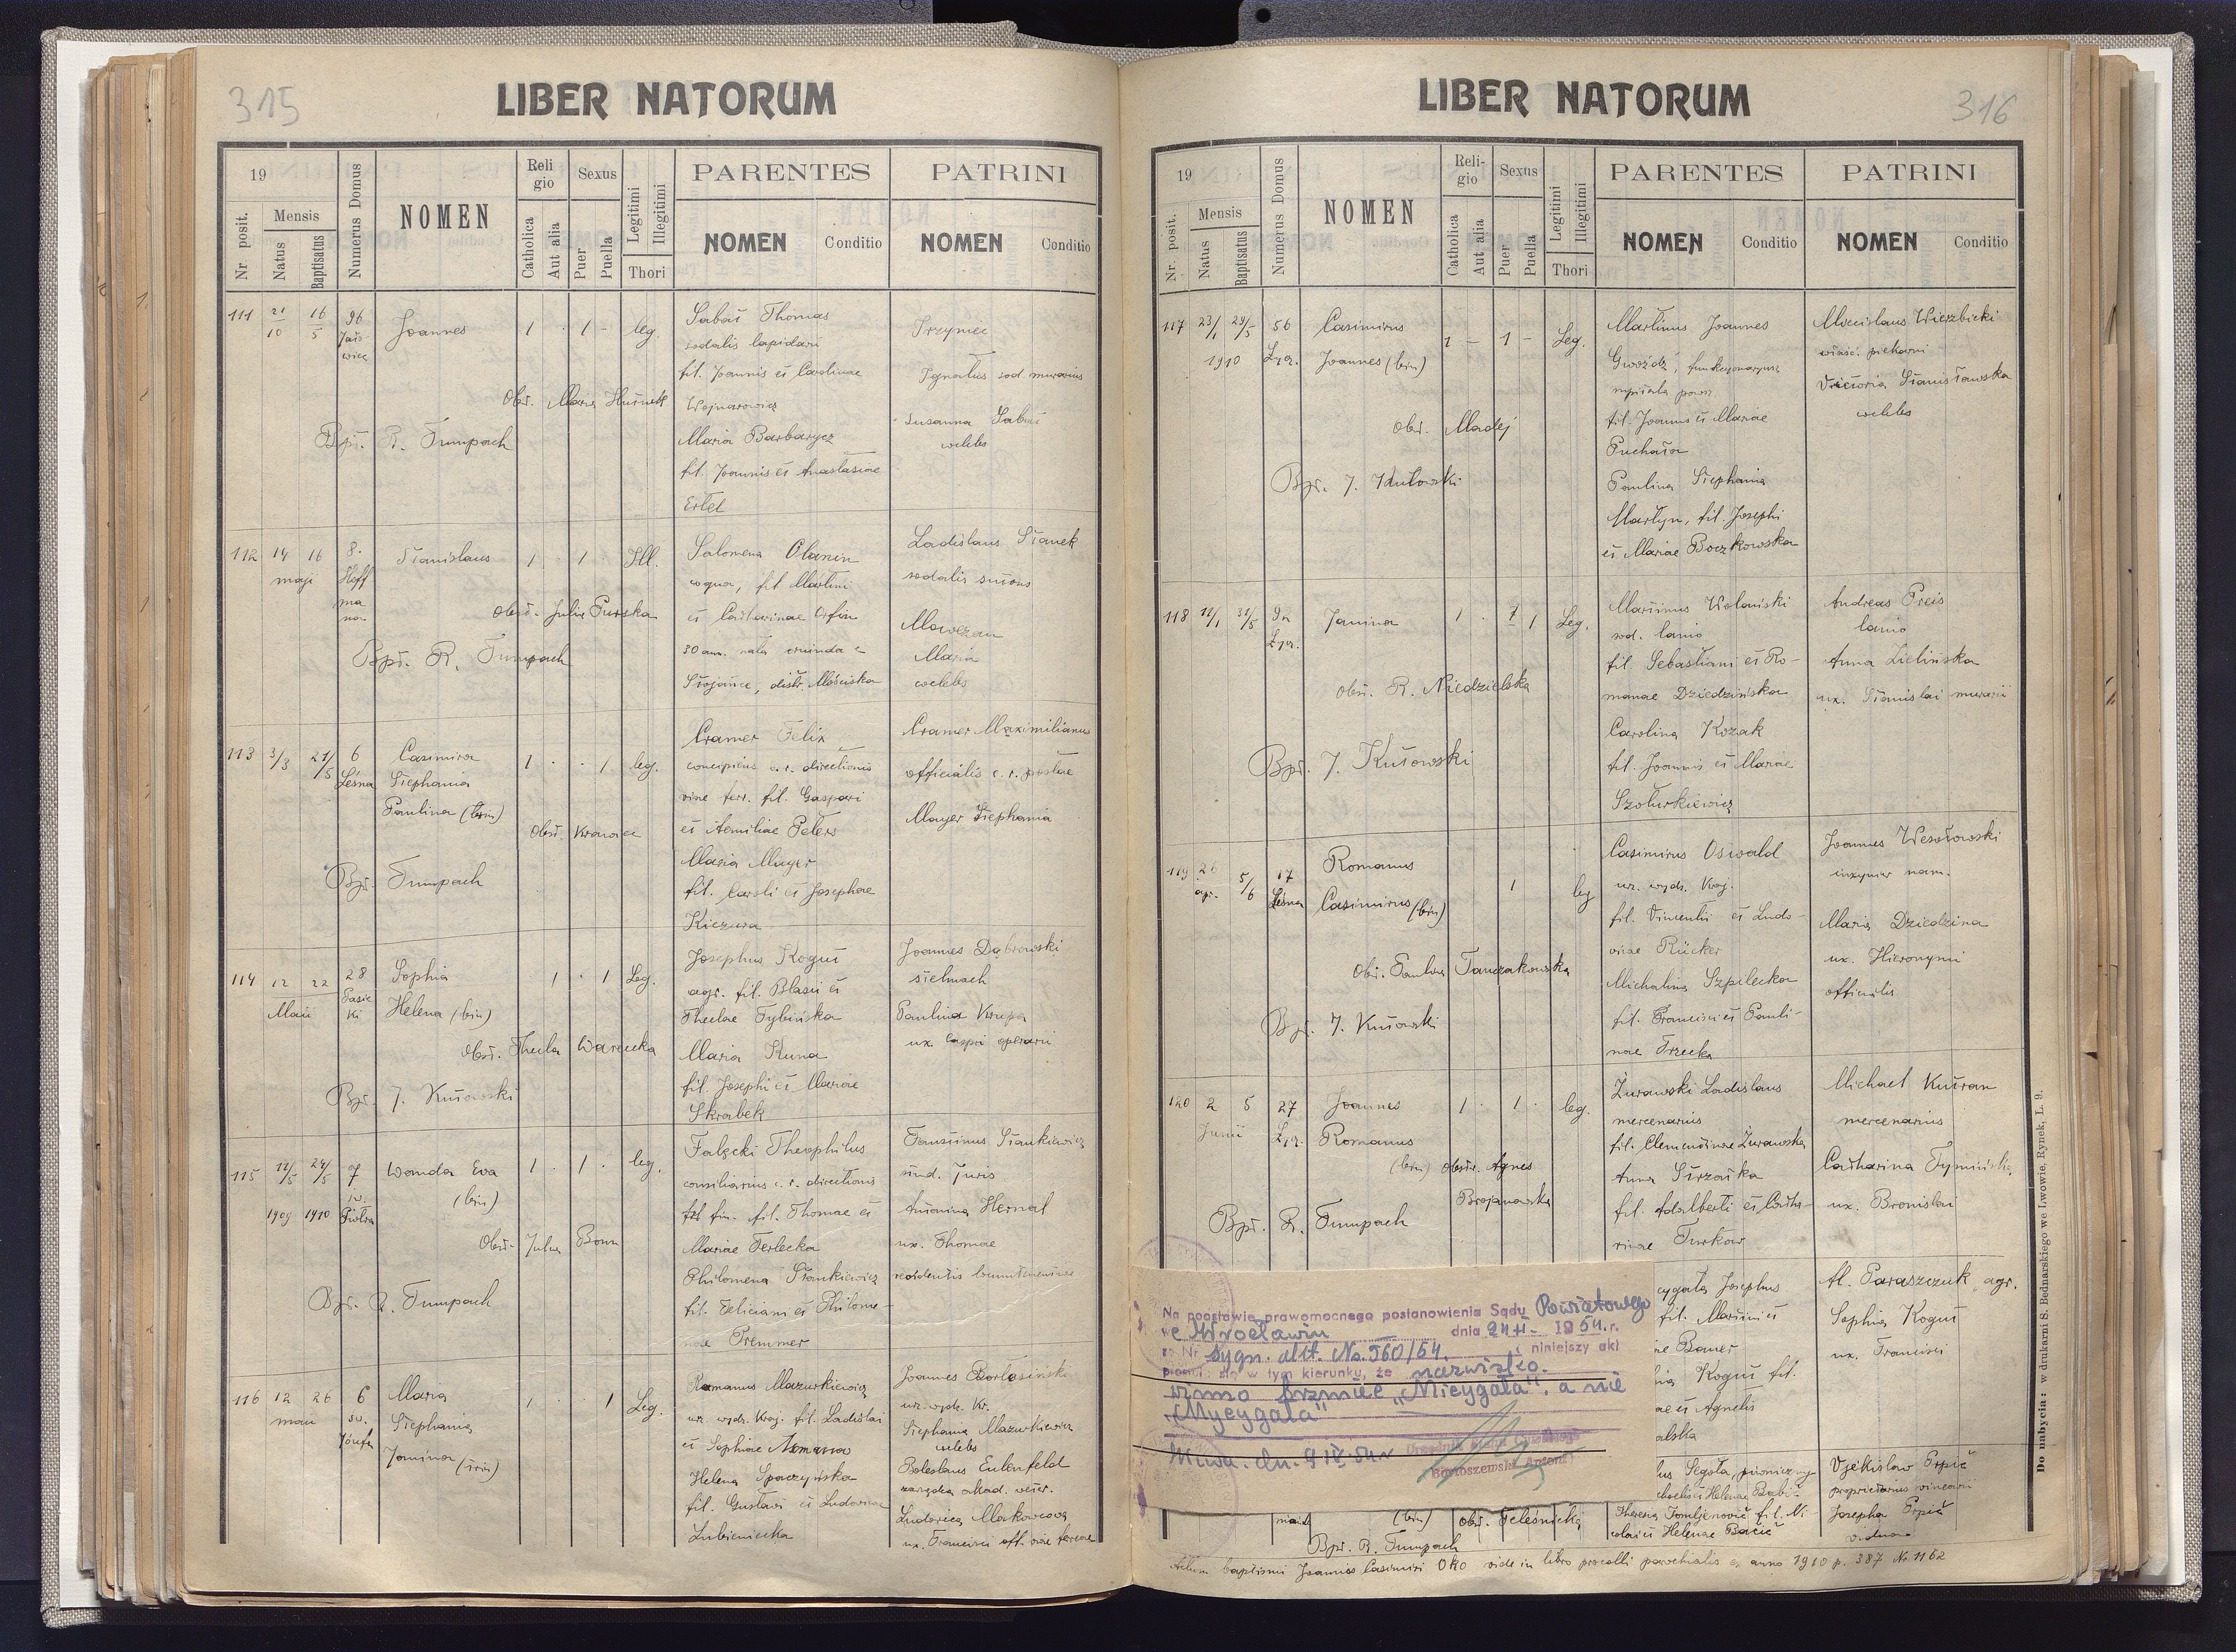 315
LIBER NATORUM
19
Nr posit.
Mensis
Natus
Baptisatus
Numerus Domus
NOMEN
Reli
gio
Catholica
Aut alia
Sexus
Puer
Puella
Legitimi
Illegitimi
Thori
PARENTES
NOMEN
Conditio
PATRINI
NOMEN
Conditio
111 21 16 96 Joannes 1 · 1 - leg.
10 5
Thomas
sodalis lapidarii
fil. Joannis et Carolinae
Wojnarowicz
Maria Barbarycz
fil. Joannis et Anastasiae
Ertel
Ignatius sod. murarius
Susanna
coelebs
Obst. Maria
Bpt. R. Tumpach
112 14 16 8. Stanislaus 1 · 1 · Ill.
maji Hoff
ma
na
Salomena
coqua, fil Martini
et Catharinae
30 ann. nata oriunda e
Stojańce, distr. Mościska
Ladislaus Stanek
sodalis
Maria
coelebs
Obst. Julia Purska
Bpt. R. Tumpach
113 3/3 21/5 6 Casimira 1 · · 1 leg.
Leśna Stephania
Paulina (trin)
Cramer Felix
concipiens c. r. directionis
viae ferr. fil. Gaspari
et Aemiliae Peters
Maria Mayer
fil. Caroli et Josephae
Kiczura
Cramer Maximilianus
officialis c. r. postae
Mayer Stephania
Obst.
Bpt. Tumpach
114 12 22 28 Sophia 1 · 1 Leg.
Maii Helena (bin)
Josephus Kogut
agr. fil. Blasii et
Theclae Tybińska
Maria Kuna
fil. Josephi et Mariae
Skrabek
Joannes Dąbrowski
stelmach
Paulina Krupa
ux. operarii
Obst. Thecla Warecka
Bpt. J. Kutowski
115 12/5 24/5 7 Wanda Eva 1 · 1 · leg.
1909 1910 św. Piotra (bin)
Falęcki Theophilus
consiliarius c. r. directionis
fin. fil. Thomae et
Mariae Terlecka
Philomena Stankiewicz
fil. Feliciani et Philome-
nae Premmer
Faustinus Stankiewicz
stud. Juris
Antonina Hernal
ux. Thomae
Obst. Julia Bonn
Bpt. R. Tumpach
116 12 26 6 Maria 1 · 1 Leg.
maii św. Stephania
Józefa Janina (trin)
Romanus Mazurkiewicz
urz. wydz. Kraj. fil. Ladislai
et Sophiae
Helena Spaczyńska
fil. Gustavi et Ludovicae
Lubieniecka
Joannes
urz. wydz. Kr.
Stephania Mazurkiewicz
coelebs
Boleslaus Eulenfeld
Ludovica Makowcowa
ux. Francisci off. viae ferreae
LIBER NATORUM
316
19
Nr. posit.
Mensis
Natus
Baptisatus
Numerus Domus
NOMEN
Reli-
gio
Catholica
Aut alia
Sexus
Puer
Puella
Legitimi
Illegitimi
Thori
PARENTES
NOMEN
Conditio
PATRINI
NOMEN
Conditio
117 23/1 29/5 56 Casimirus 1 - 1 - Leg.
1910 Łycz. Joannes (bin)
Martinus Joannes
Gwoźdź, funkcyonaryusz
szpitala powsz
fil. Joannis et Mariae
Puchała
Paulina Stephania
Martyn, fil. Josephi
et Mariae Boczkowska
Miecislaus Wierzbicki
właśc. piekarni
Victoria Stanisławska
coelebs
Obst. Madej
Bpt. J. Kutowski
118 12/1 31/5 9a Janina 1 · 1 Leg.
Łycz.
Martinus Wolański
sod. lanio
fil. Sebastiani et Ro-
manae Dziedzińska
Carolina Kozak
fil. Joannis et Mariae
Szoturkiewicz
Andreas Preis
lanio
Anna Zielińska
ux. Stanislai murarii
Obst. R. Niedzielska
Bpt. J. Kutowski
119 26 5/6 17 Romanus 1 leg
apr. Leśna Casimirus (bin)
Casimirus Oswald
urz. wydz. Kraj.
fil. Vincentii et Ludo-
vicae Rücker
Michalina Szpilecka
fil. Francisci et Pauli-
nae Trzecka
Joannes Wesołowski
inżynier nam.
Maria Dziedzina
ux. Hieronymi
officialis
Obst. Paulina Tanczakowska
Bpt. J. Kutowski
120 2 5 27 Joannes 1 · 1 · leg.
Junii Łycz. Romanus
(bin) obstr. Agnes
Brojanowska
Żurawski Ladislaus
mercenarius
fil. Clementinae Żurawska
Anna
fil. Adalberti et Catha-
rinae Turków
Michael Kutran
mercenarius
Catharina Tymińska
ux. Bronislai
Bpt. R. Tumpach
cygała Josephus
fil. Martini et
Bauer
Kogut fil.
et Agnetis
alska
Al. Paraszczuk agr.
Sophia Kogut
ux. Francisci
Na podstawie prawomocnego postanowienia Sądu Powiatowego
we Wrocławiu dnia 24 II- 1954.r.
Nr sygn. akt. Ns. 560/54. niniejszy akt
prostuje się w tym kierunku, że nazwisko
winno brzmieć „Micygała", a nie
„Mycygała"
dn. 9 IV. 54 r
Urzędnik Stanu Cywilnego
Bartoszewski Antoni
Segota,
et Helenae
Theresa Tomljenović fil. Ni-
colai et Helenae Bačić
Vjekislav Prpić
proprietarius vinearii
Josepha Prpić
vidua
maii (bin) Obst. Teleśnicka
Bpt. R. Tumpach
Actum baptismi Joannis Casimiri Oko vide in libro procolli parochialis ex anno 1910 p. 387 № 1162
Do nabycia: w drukarni S. Bednarskiego we Lwowie, Rynek, L. 9.